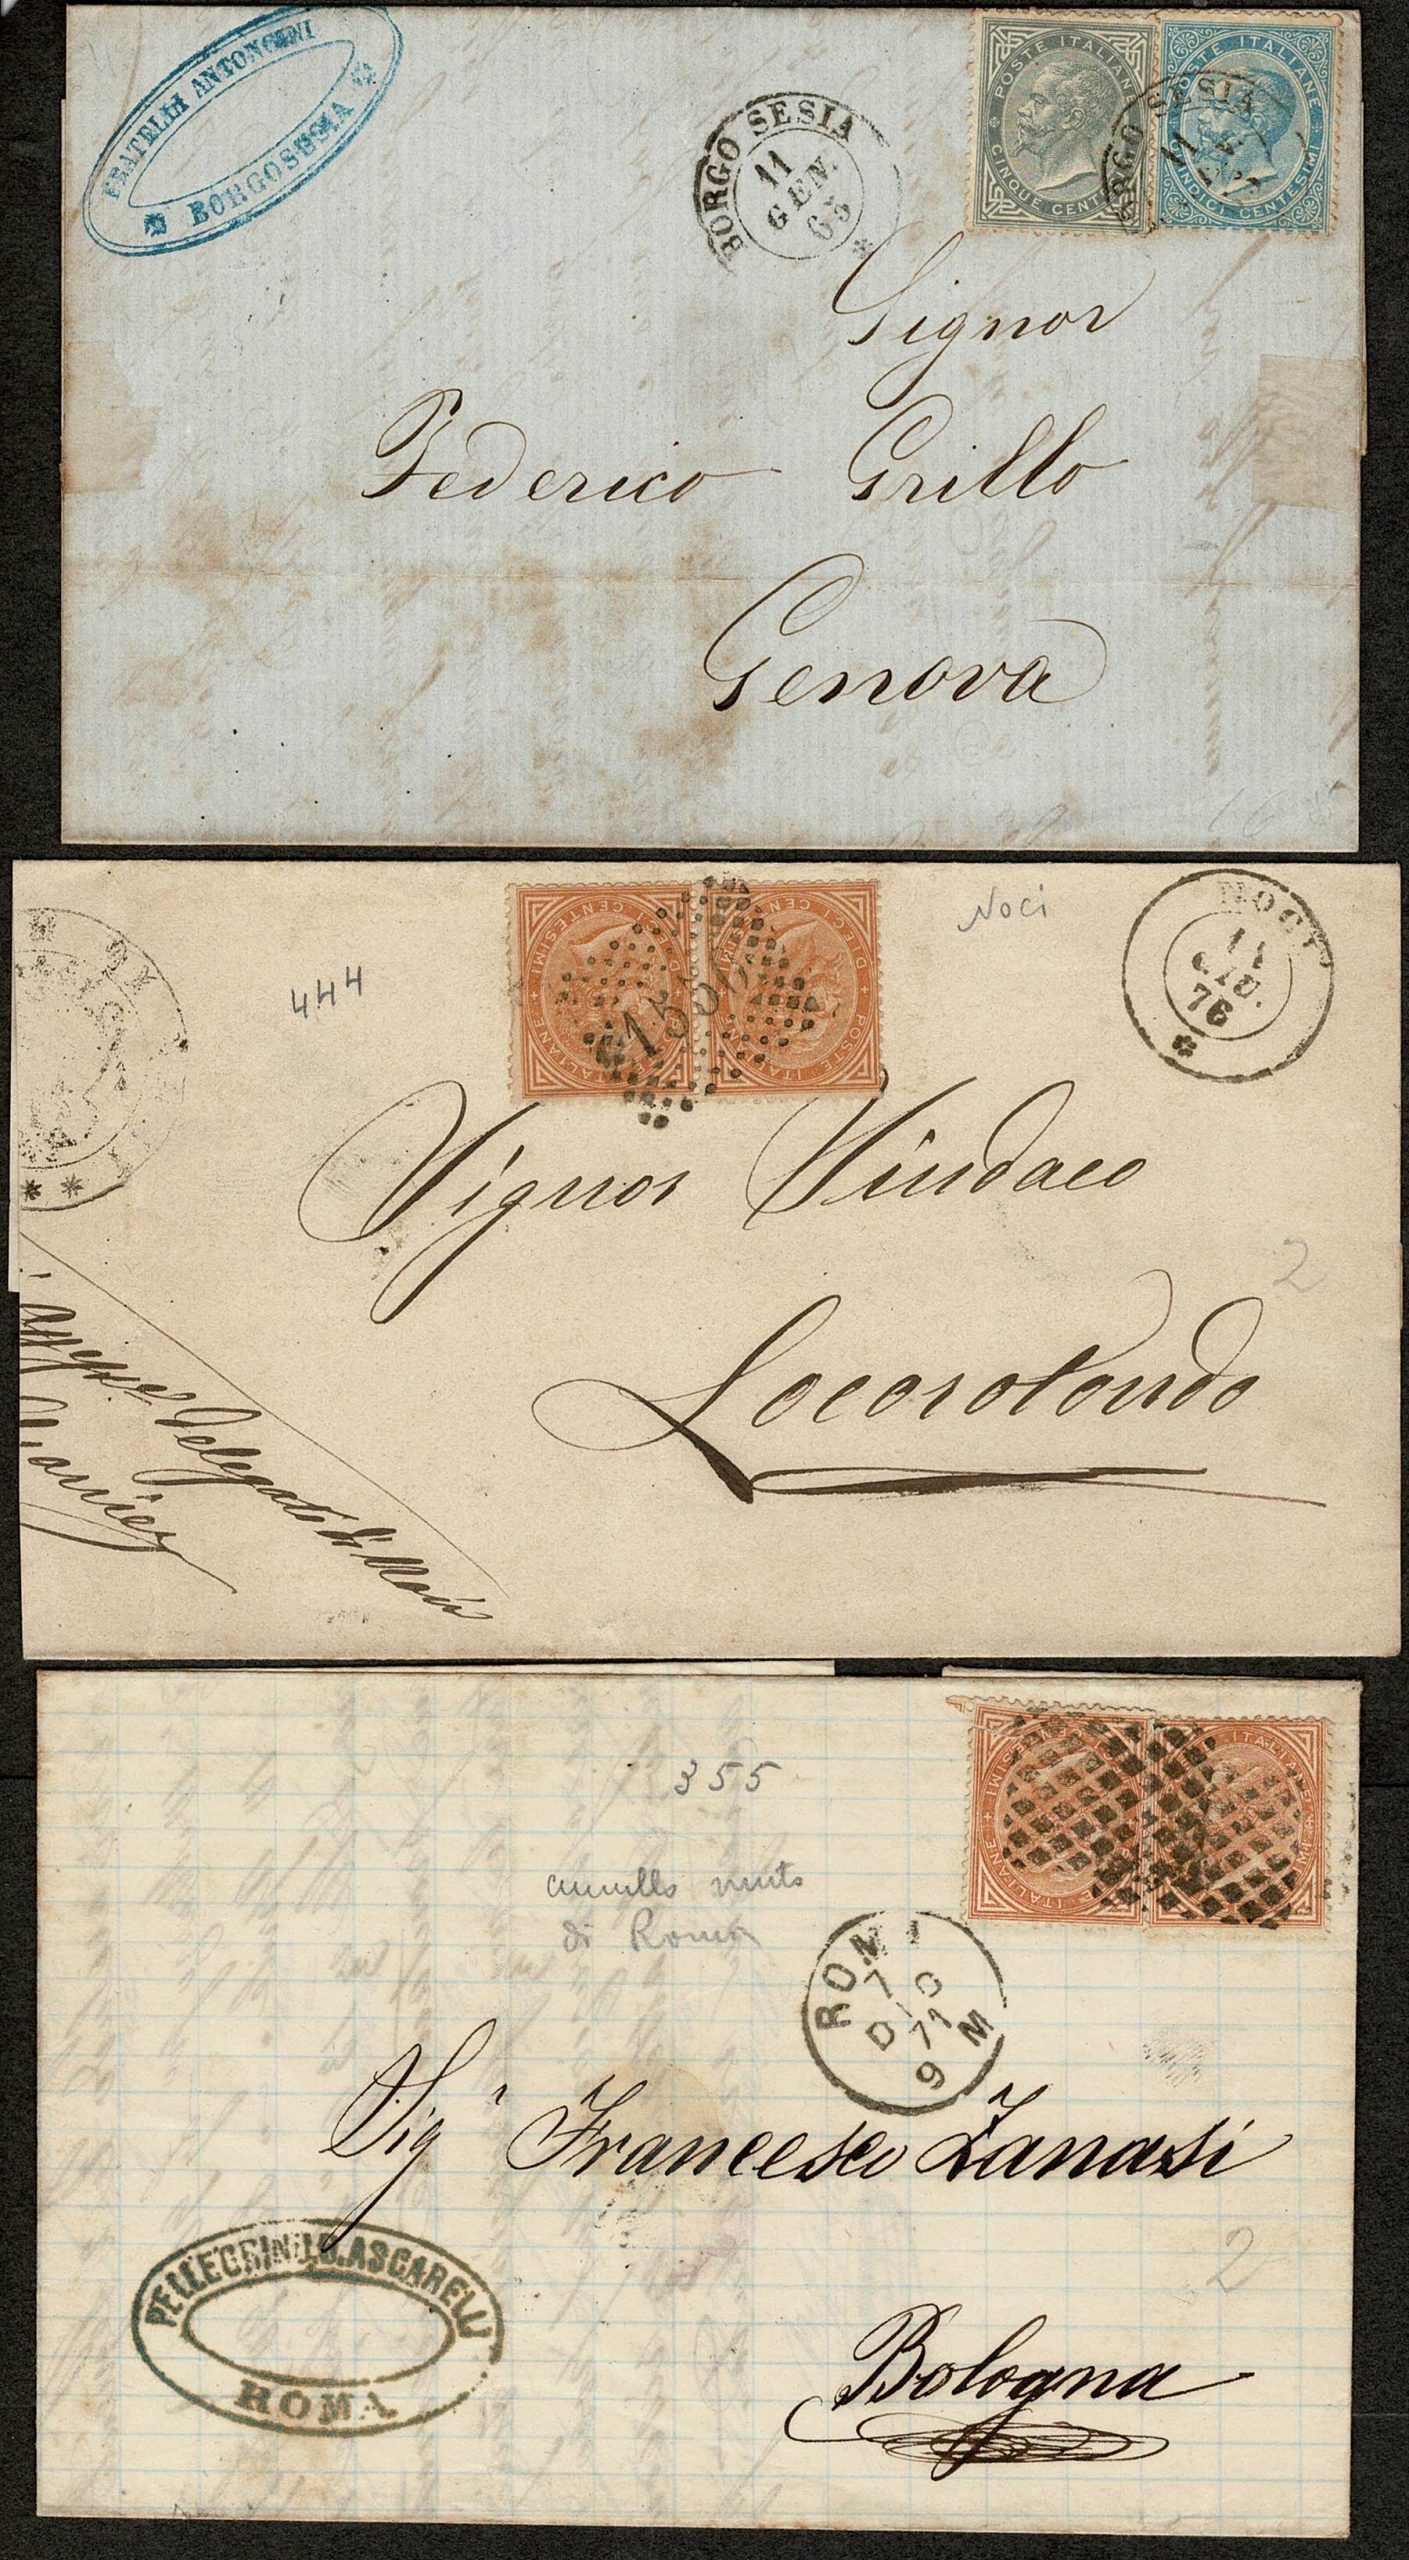 FRATELLI ANTONGINI
BORGOSESIA
BORGO SESIA
11
GEN.
65
POSTE ITALIANE
CINQUE CENT
POSTE ITALIANE
QUINDICI CENTESIMI
BORGO SESIA
11
Signor
Federico Grillo
Genova
16
444
DIECI CENTESIMI
POSTE ITALIANE
DIECI CENTESIMI
POSTE ITALIANE
Noci
NOCI
11
GIU.
76
Signor Sindaco
2
Locorotondo
Delegato di Noci
355
annullo muto
di Roma
ITALIANE
ITALIANE
ROMA
7
DIC
71
9 M
Sigr Francesco Zanasi
PELLEGRINO J.D. ASCARELLI
ROMA
2
Bologna